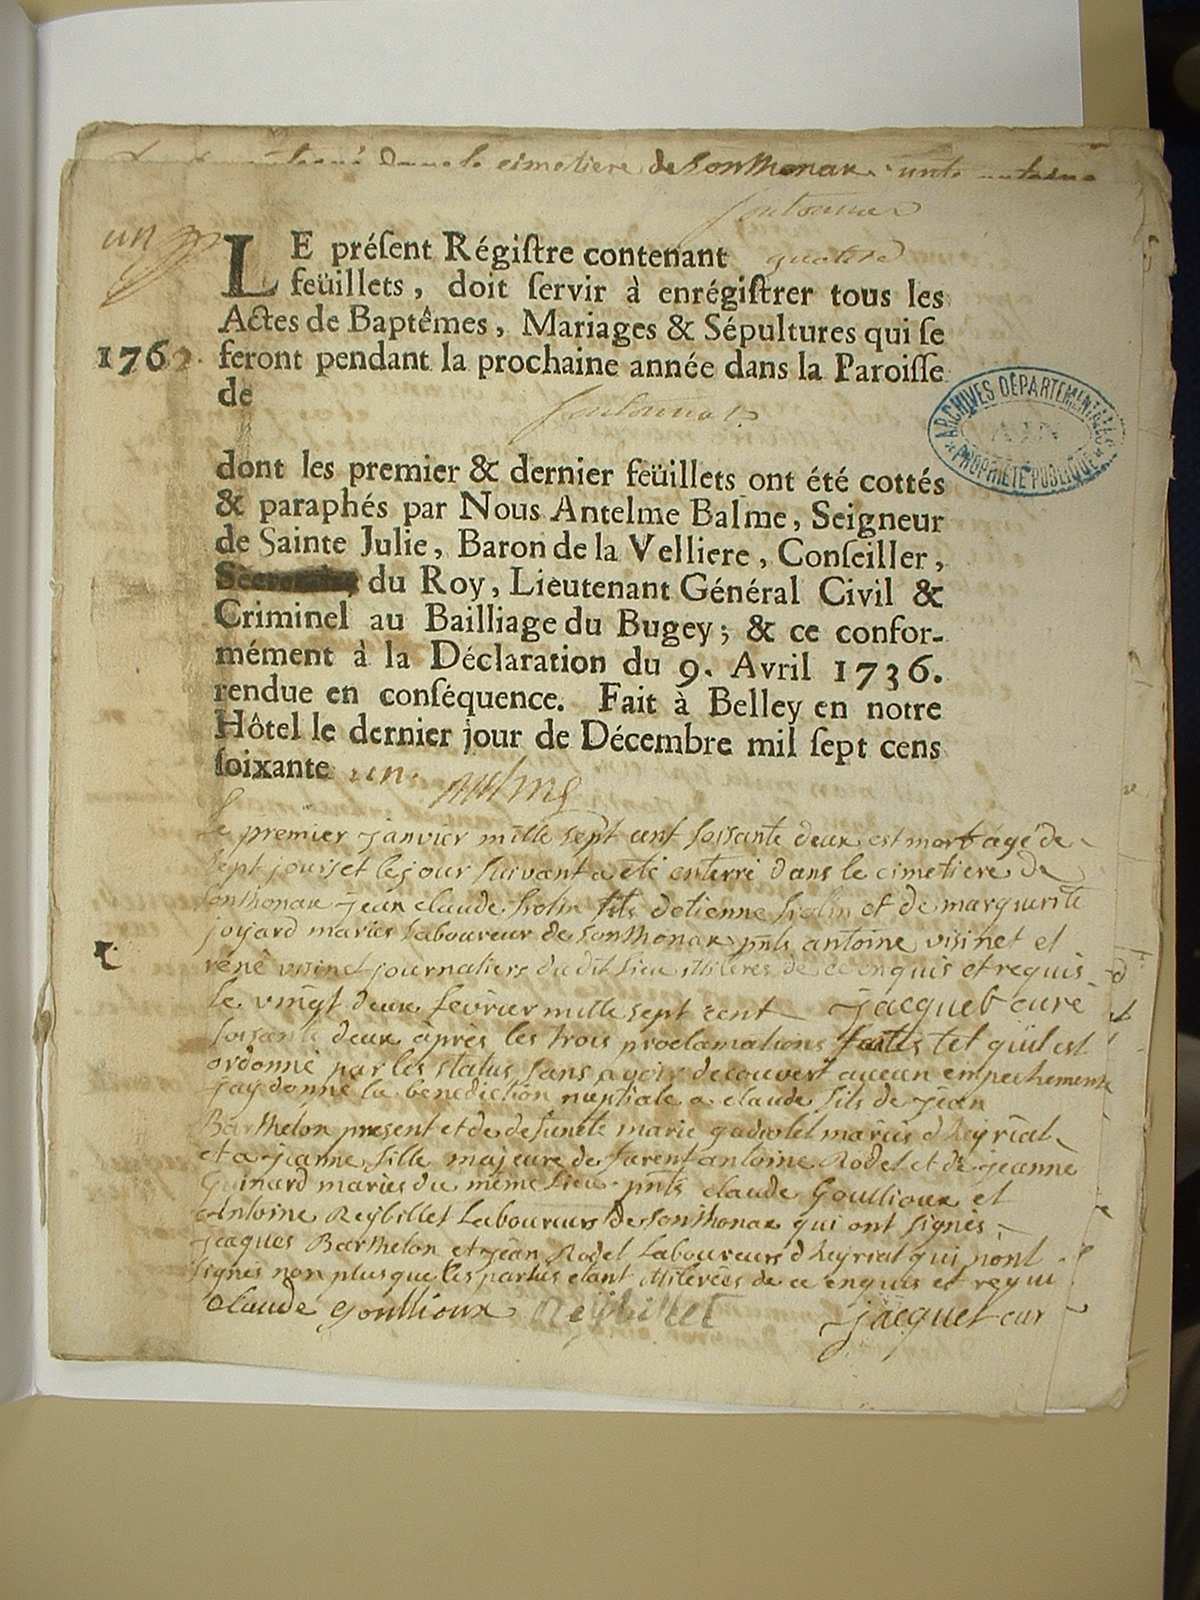 dans le cimetiere de Sonthonax
un
LE préſent Régiſtre contenant quatre
feüillets, doit ſervir à enrégiſtrer tous les
Actes de Baptêmes, Mariages & Sépultures qui ſe
1762. feront pendant la prochaine année dans la Paroiſſe
de
ARCHIVES DÉPARTEMENTALES
AIN
PROPRIÉTÉ PUBLIQUE
dont les premier & dernier feüillets ont été cottés
& paraphés par Nous Antelme Balme, Seigneur
de Sainte Julie, Baron de la Velliere, Conſeiller,
du Roy, Lieutenant Général Civil &
Criminel au Bailliage du Bugey; & ce confor-
mément à la Déclaration du 9. Avril 1736.
rendue en conſéquence. Fait à Belley en notre
Hôtel le dernier jour de Décembre mil ſept cens
ſoixante un.
Le premier janvier mille sept cent soissante deux est mort agé de
sept jours et le jour suivant a été enterré dans le cimetiere de
sonthonax jean claude fils detienne et de marguerite
joyard mariés laboureur de sonthonax pnts antoine visinet et
réné visinet journaliers du dit lieu illiterés de ce enquis et requis
le vingt deux fevrier mille sept cent jacquet curé
soisante deux après les trois proclamations faites tel qüil est
ordonné par les status sans avoir decouvert aucun empechement
jay donné la benediction nuptiale a claude fils de jean
Barthelon present et de defuncte marie mariés d heyriat
et a jeanne fille majeure de furent antoine Rodet et de jeanne
Guinard mariés du même lieu pnts claude Goullioux et
Antoine Reybillet Laboureurs de sonthonax qui ont signés
jacques Barthelon et jean Rodet Laboureurs d heyriat qui nont
signés non plus que les parties etant illiterées de ce enquis et requi
claude goullioux Reÿbillet jacquet cur